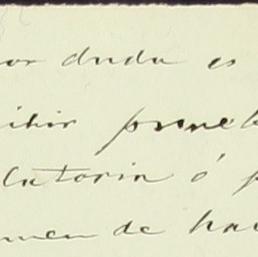 or duda es
ibir prueb
latoria ó p
men de hac